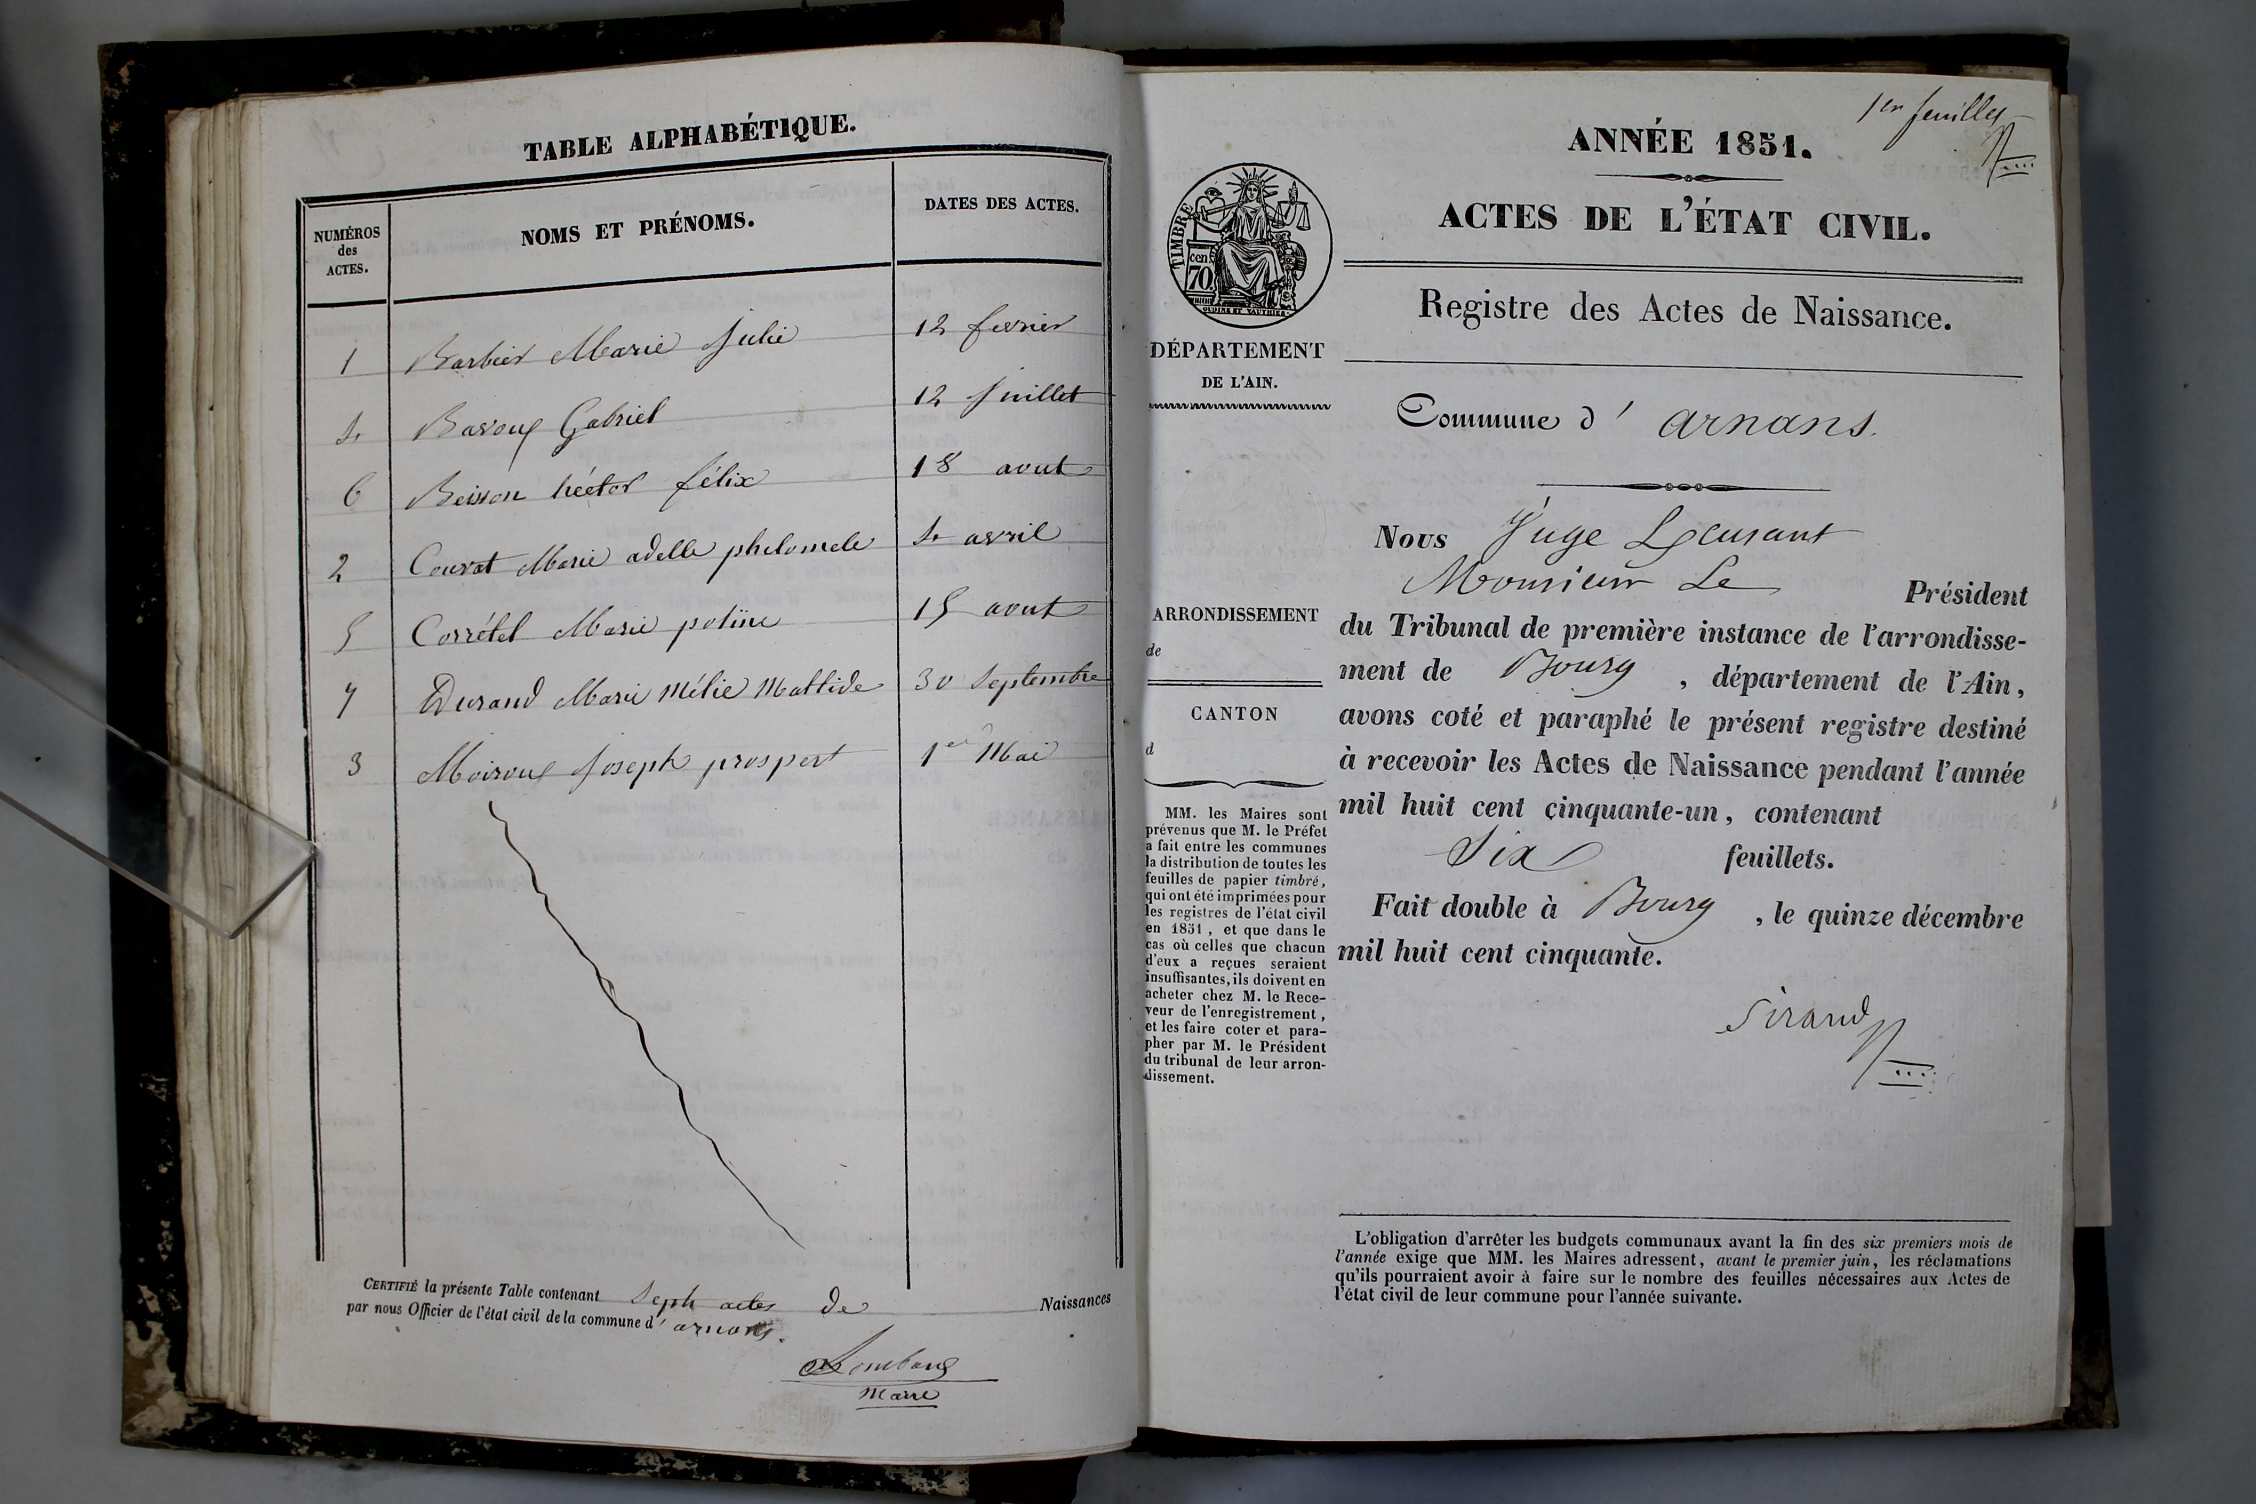 TABLE ALPHABÉTIQUE.
NUMÉROS des ACTES. NOMS ET PRÉNOMS. DATES DES ACTES.
1 Barbier Marie Julie 12 fevrier
4 Bavoux Gabriel 12 Juillet
6 Beisson héctor félix 18 aout
2 Couvat Marie adelle philomele 4 avril
5 Corrétel Marie poline 15 aout
7 Durand Marie Mélie Mattide 30 Septembre
3 Moiroux Joseph prospert 1er Mai
CERTIFIÉ la présente Table contenant Seph actes de Naissances
par nous Officier de l'état civil de la commune d' arnans.
Maire
1er feuillet
ANNÉE 1851.
ACTES DE L'ÉTAT CIVIL.
TIMBRE
70 cen
Registre des Actes de Naissance.
DÉPARTEMENT
DE L'AIN.
Commune d' arnans.
Nous Juge
Monsieur Le Président
du Tribunal de première instance de l'arrondisse-
ment de Bourg, département de l'Ain,
avons coté et paraphé le présent registre destiné
à recevoir les Actes de Naissance pendant l'année
mil huit cent cinquante-un, contenant
Six feuillets.
Fait double à Bourg, le quinze décembre
mil huit cent cinquante.
Sirand
ARRONDISSEMENT
de
CANTON
d
MM. les Maires sont
prévenus que M. le Préfet
a fait entre les communes
la distribution de toutes les
feuilles de papier timbré,
qui ont été imprimées pour
les registres de l'état civil
en 1851, et que dans le
cas où celles que chacun
d'eux a reçues seraient
insuffisantes, ils doivent en
acheter chez M. le Rece-
veur de l'enregistrement,
et les faire coter et para-
pher par M. le Président
du tribunal de leur arron-
dissement.
L'obligation d'arrêter les budgets communaux avant la fin des six premiers mois de
l'année exige que MM. les Maires adressent, avant le premier juin, les réclamations
qu'ils pourraient avoir à faire sur le nombre des feuilles nécessaires aux Actes de
l'état civil de leur commune pour l'année suivante.